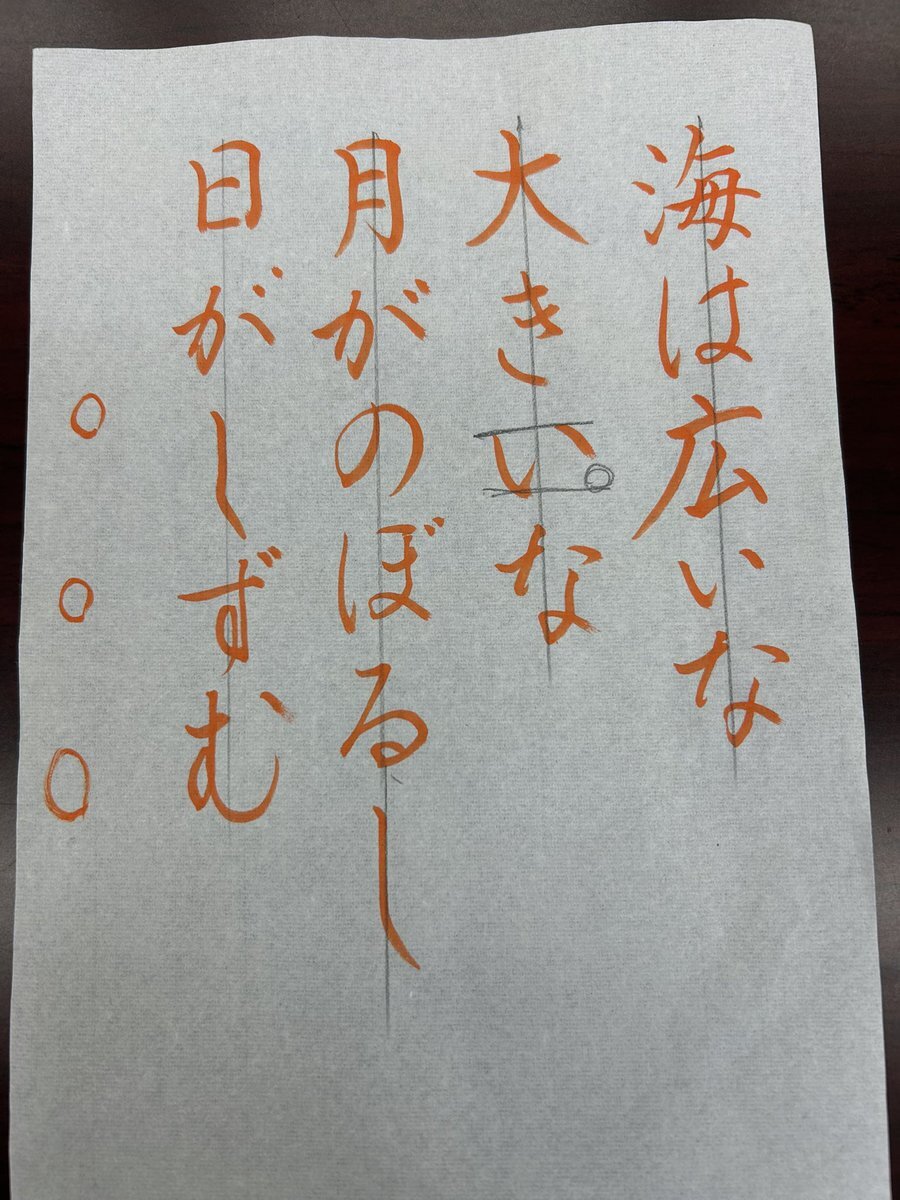 海は広いな
大きいな
月がのぼるし
日がしずむ